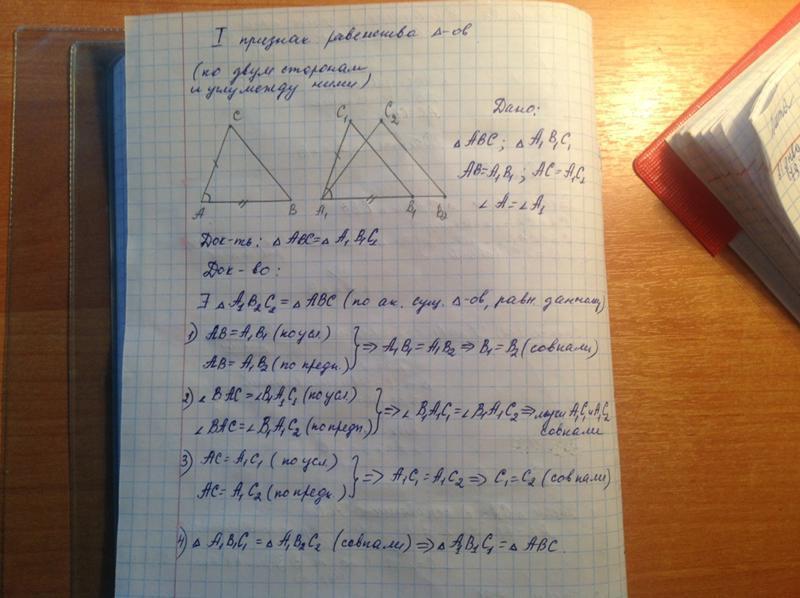 I признак равенства Δ-ов
(по двум сторонам
и углу между ними)
C
A
B
C₁
C₂
A₁
B₁
B₂
Дано:
Δ ABC; Δ A₁B₁C₁
AB=A₁B₁; AC=A₁C₁
∠A=∠A₁
Док-ть: Δ ABC=Δ A₁B₁C₁
Док-во:
∃ Δ A₁B₂C₂=Δ ABC (по ак. сущ. Δ-ов, равн. данному)
1) AB=A₁B₁ (по усл.)
AB=A₁B₂ (по предп.) } ⇒ A₁B₁=A₁B₂ ⇒ B₁=B₂ (совпали)
2) ∠BAC=∠B₁A₁C₁ (по усл.)
∠BAC=∠B₁A₁C₂ (по предп.) } ⇒ ∠B₁A₁C₁=∠B₁A₁C₂ ⇒ лучи A₁C₁ и A₁C₂
совпали
3) AC=A₁C₁ (по усл.)
AC=A₁C₂ (по предп.) } ⇒ A₁C₁=A₁C₂ ⇒ C₁=C₂ (совпали)
4) Δ A₁B₁C₁=Δ A₁B₂C₂ (совпали) ⇒ Δ A₁B₁C₁=Δ ABC.